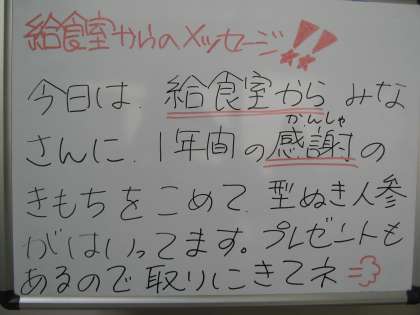 給食室からのメッセージ!!
今日は、給食室から みな
さんに、1年間の感謝(かんしゃ)の
きもちをこめて、型ぬき人参
がはいってます。プレゼントも
あるので取りにきてネ